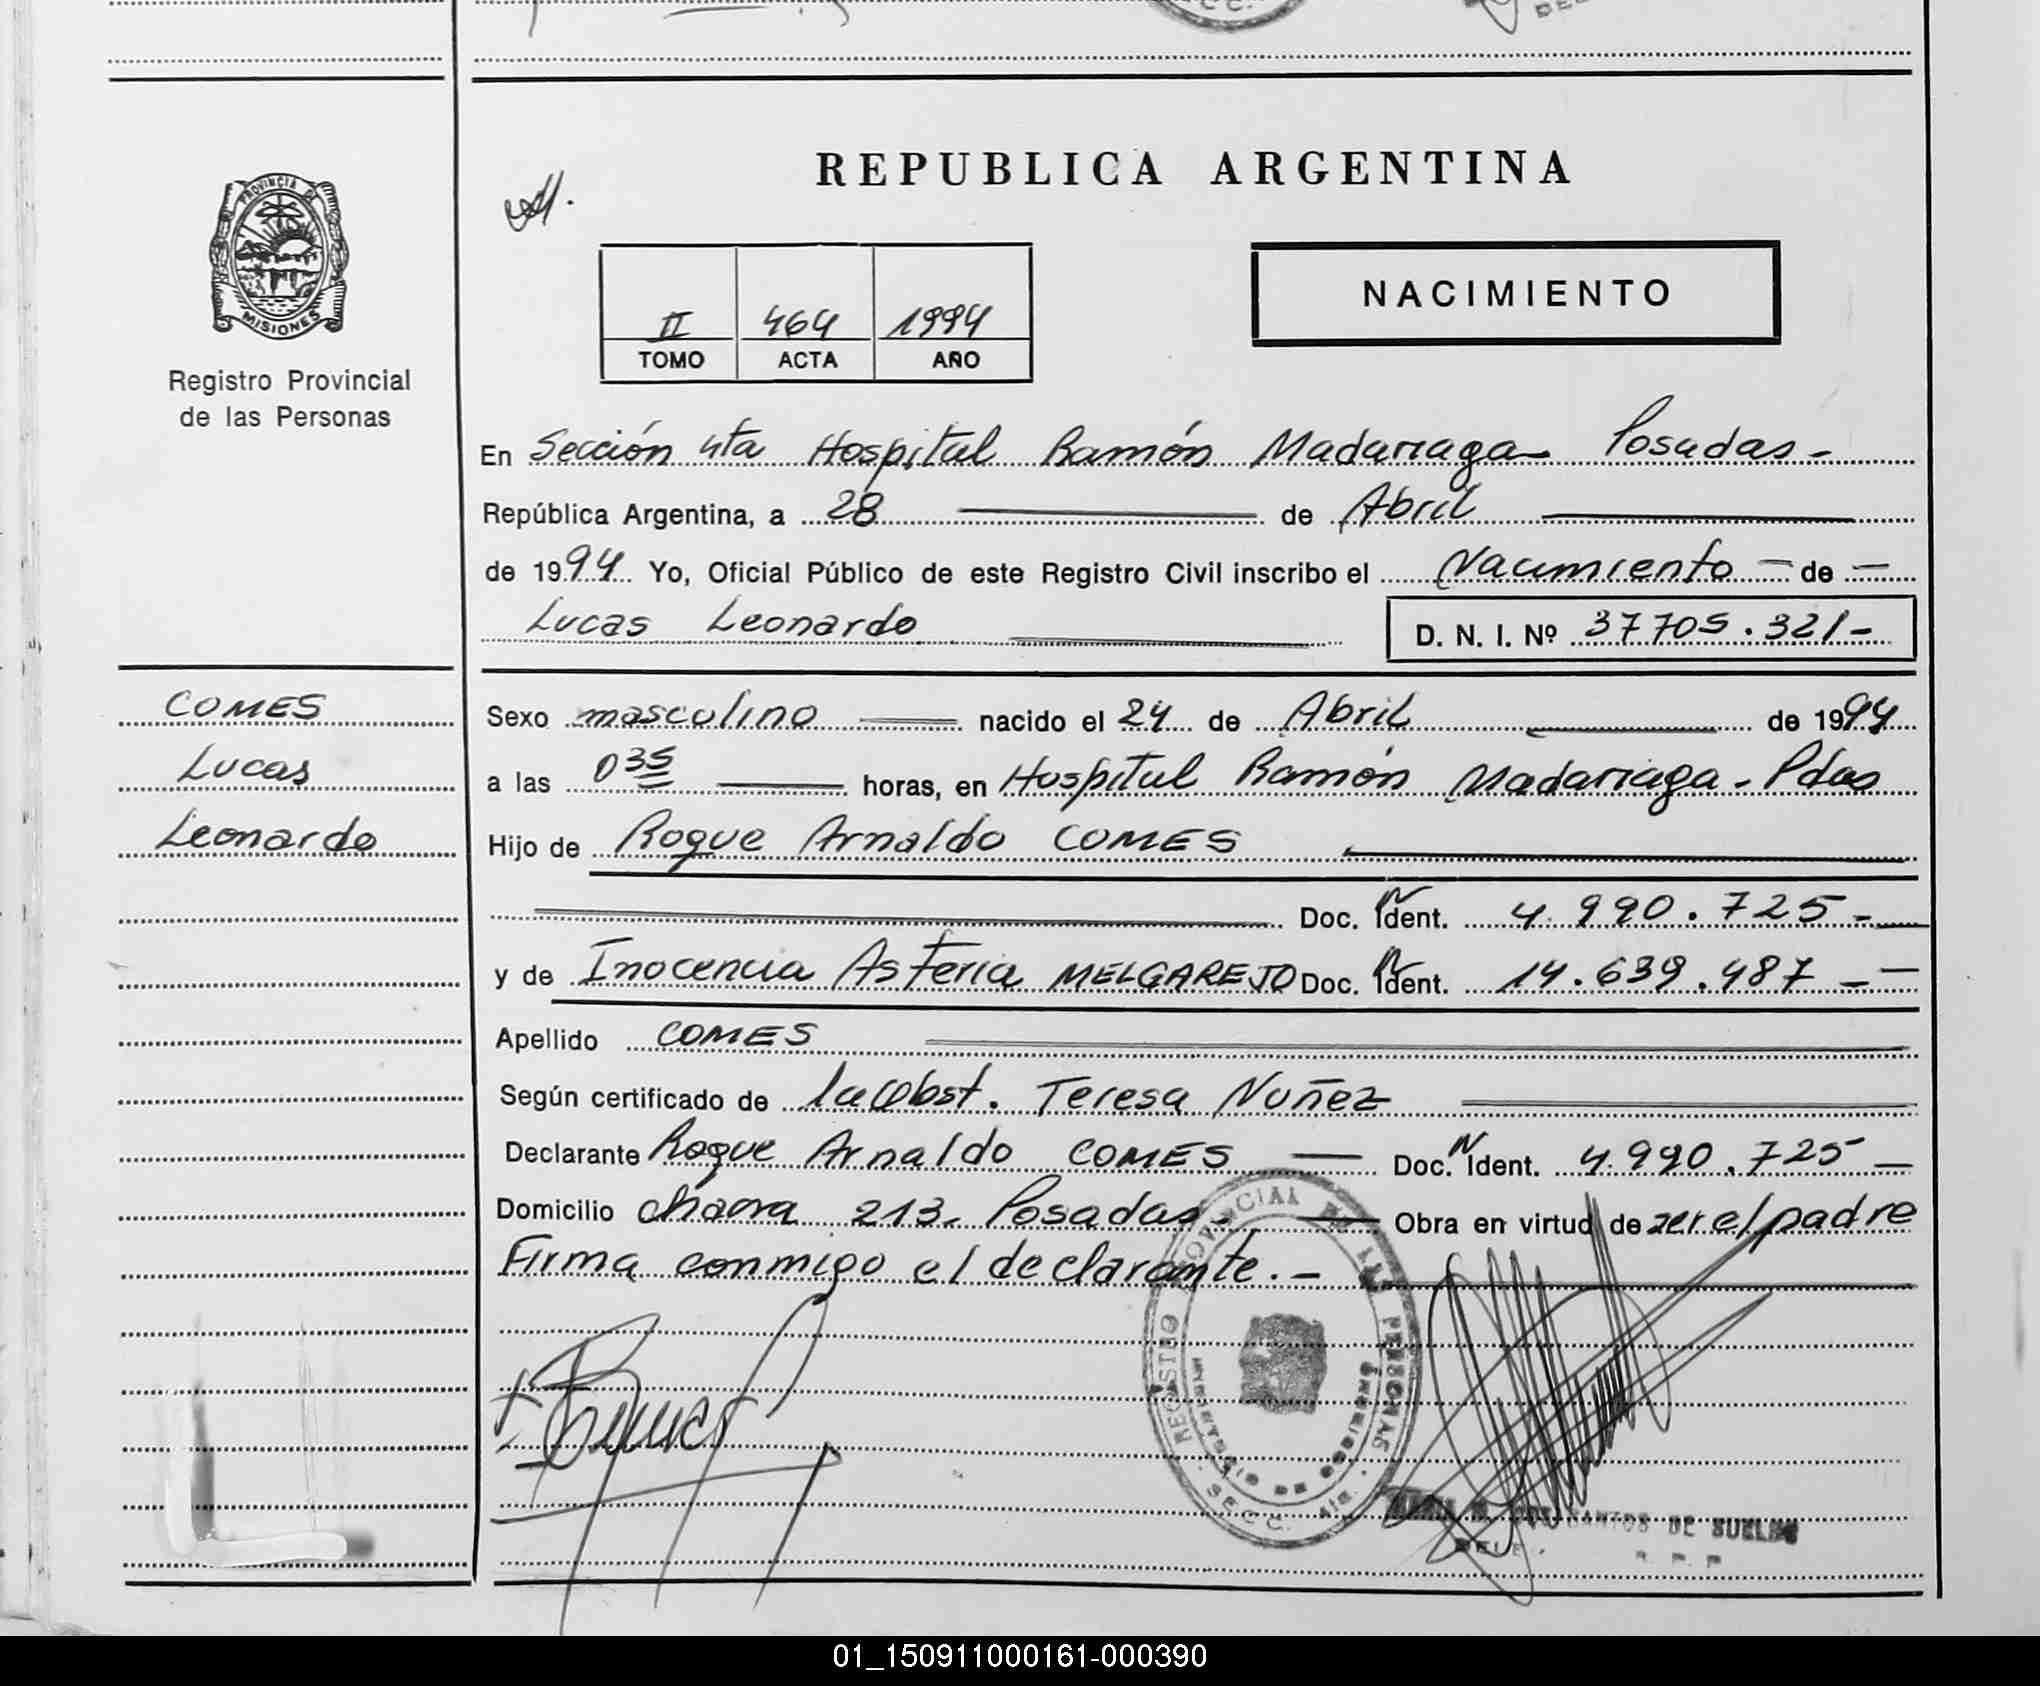 REPUBLICA ARGENTINA
PROVINCIA DE
MISIONES
Registro Provincial
de las Personas
II 464 1994
TOMO ACTA AÑO
NACIMIENTO
En Sección 4ta Hospital Ramón Madariaga Posadas -
República Argentina, a 28 de Abril
de 1994 Yo, Oficial Público de este Registro Civil inscribo el Nacimiento de
Lucas Leonardo D. N. I. Nº 37705.321-
COMES
Lucas
Leonardo
Sexo masculino nacido el 24 de Abril de 1994
a las 0 35 horas, en Hospital Ramón Madariaga - Pdas
Hijo de Roque Arnaldo COMES
Doc. Ident. 4.990.725 -
y de Inocencia Asteria MELGAREJO Doc. Ident. 14.639.487 -
Apellido COMES
Según certificado de la Obst. Teresa Nuñez
Declarante Roque Arnaldo COMES Doc. Ident. 4.990.725 -
Domicilio chacra 213. Posadas Obra en virtud de ser el padre
Firma conmigo el declarante. -
REGISTRO PROVINCIAL DE LAS PERSONAS
SECC. 4ta.
SANTOS DE
01_150911000161-000390